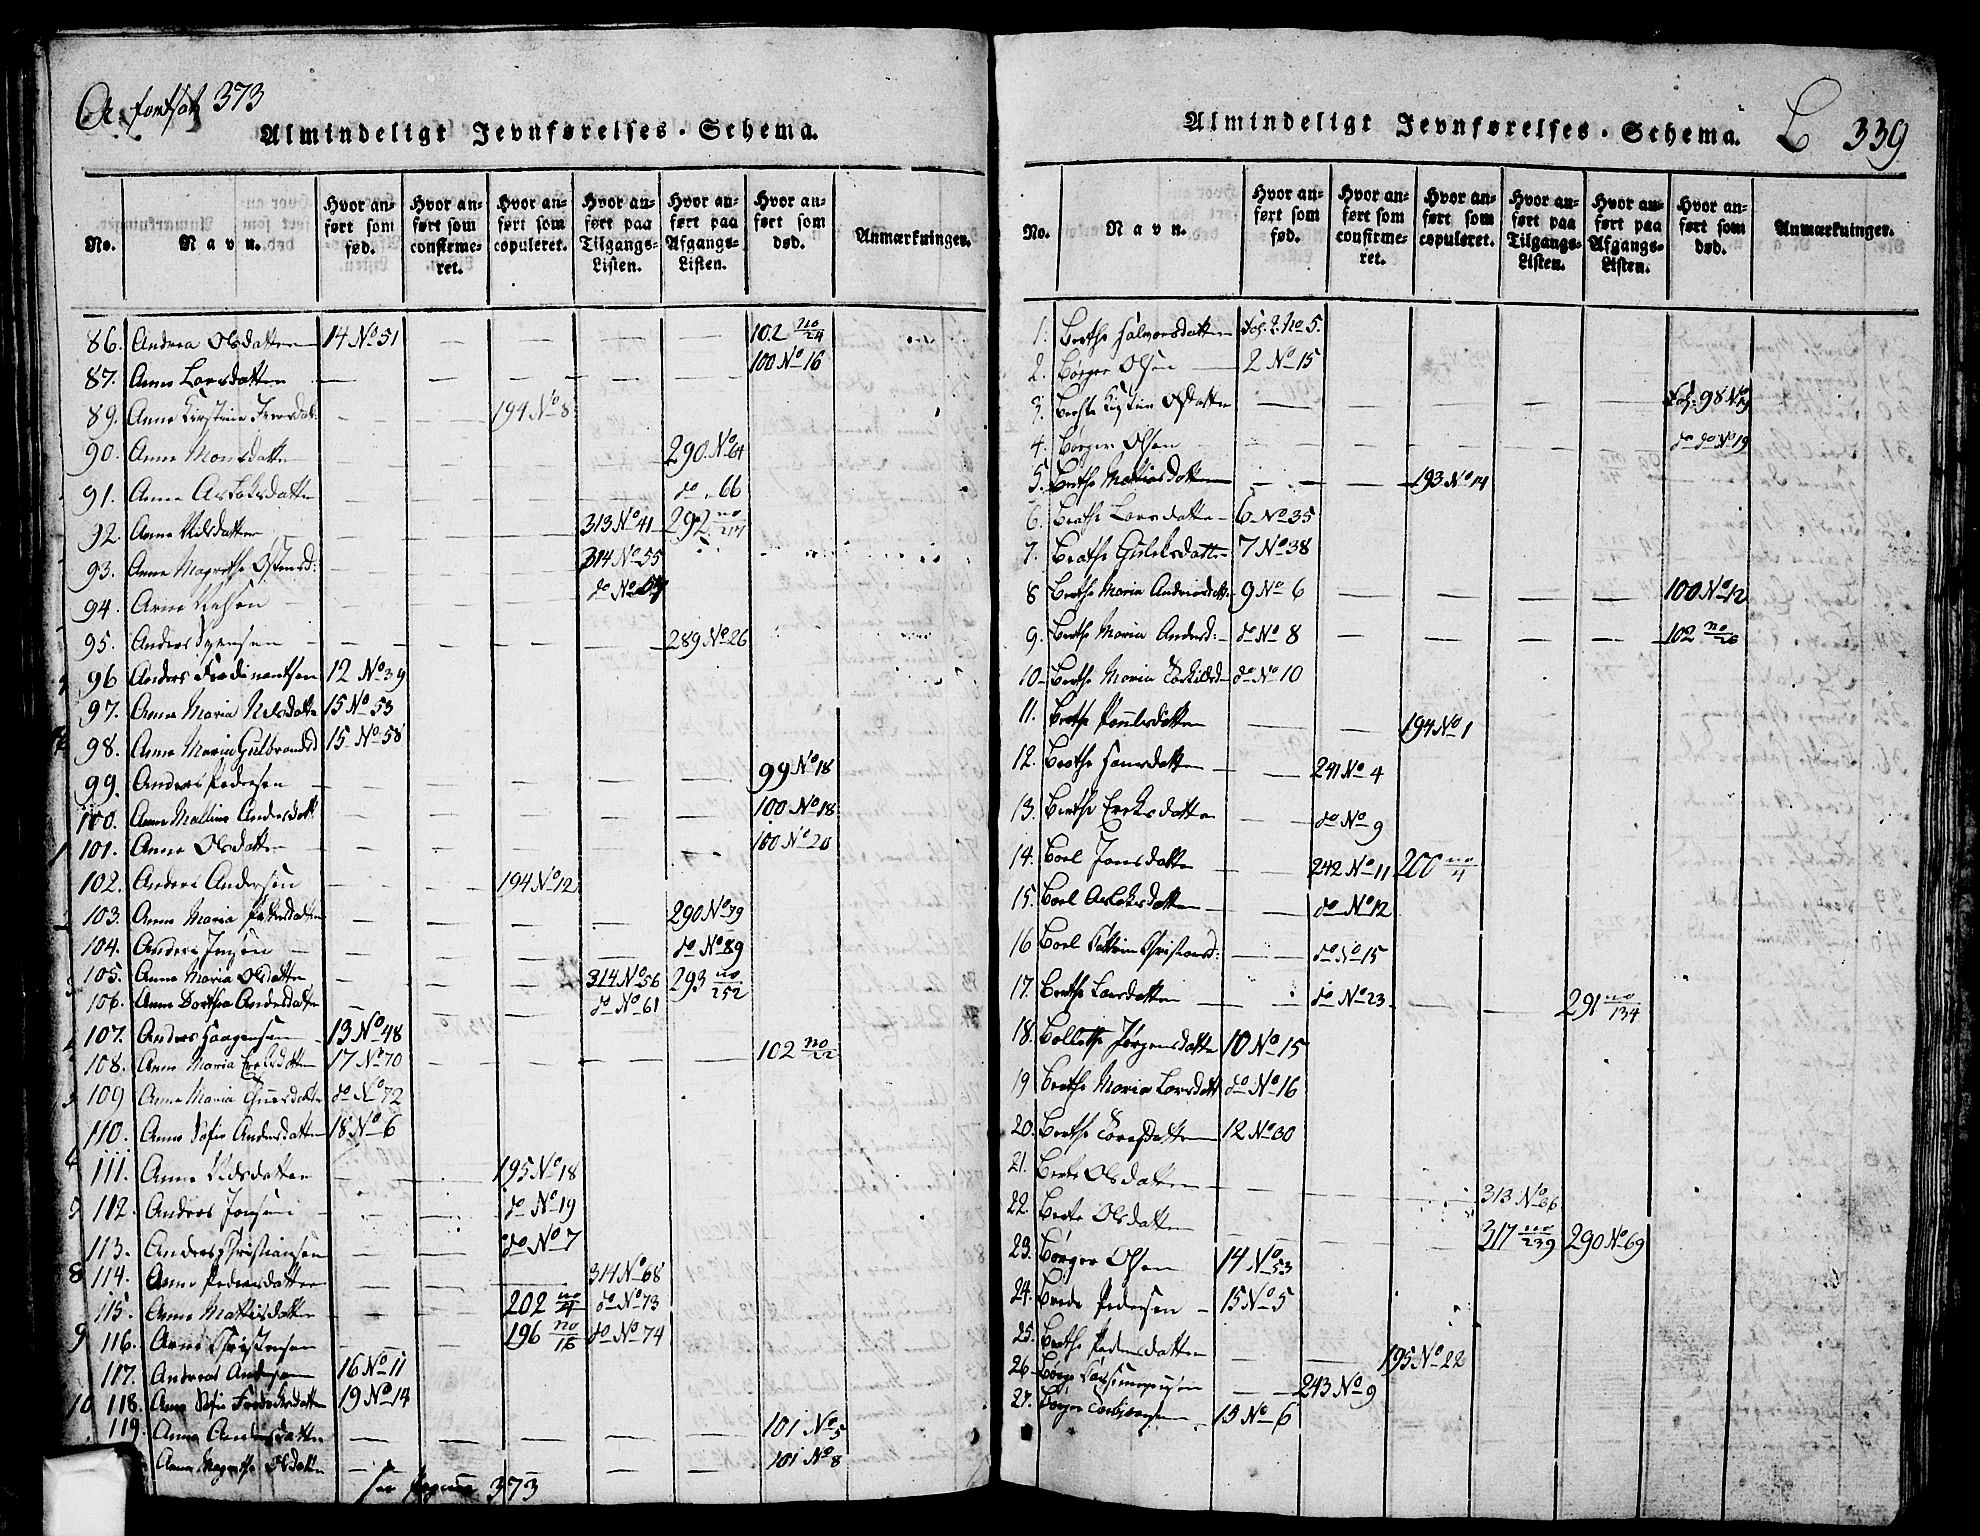 A. fortsat 373
Almindeligt Jevnførelses-Schema.
No.
Navn.
Hvor anført som fød.
Hvor anført som confirmeret.
Hvor anført som copuleret.
Hvor anført paa Tilgangs-Listen.
Hvor anført paa Afgangs-Listen.
Hvor anført som død.
Anmærkninger.
86. Andrea Olsdatter 14 No 51 — — — — 102 no/24
87. Anne Larsdatter — — — — — 100 No 16
89. Anne Kirstine Iversdat: — — 194 No 8
90. Anne Monsdatter — — — — 290 No 64
91. Anne Aslaksdatter — — — — do „ 66
92. Anne Nilsdatter — — — 313 No 41 292 no/217
93. Anne Magrethe Ostensd: — — — 314 No 55
94. Arne Nilsen — — — do No 57
95. Anders Syversen — — — — 289 No 26
96 Anders Ferdinantsen 12 No 39
97. Anne Maria Nilsdatter 15 No 53
98. Anne Maria Gulbrandsd 15 No 58
99. Anders Pedersen — — — — — 99 No 18
100. Anne Mattine Andersdatt — — — — — 100 No 18
101. Anne Olsdatter — — — — — 100 No 20
102. Anders Andersen — — 194 No 12
103. Anne Maria Pedersdatter — — — — 290 No 79
104. Anders Jensen — — — — do No 89
105. Anne Maria Olsdatter — — — 314 No 56 293 no/252
106. Anne Dorthea Andersdatter — — — do No 61
107. Anders Haagensen 13 No 48
108. Anne Maria Eriksdatter 17 No 70 — — — — 102 no/22
109 Anne Maria Gunersdatter do No 72
110. Anne Sofie Andersdatter 18 No 6
111. Anne Nilsdatter — — 195 No 18
112. Anders Jonsen — — do No 19
113. Anders Christiansen — — do No 7
114. Anne Pedersdatter — — — 314 No 68
115. Anne Mathisdatter — — 202 no/4 do No 73
116. Arne Christensen — — 196 no/16 do No 74
117. Andreas Andersen 16 No 11
118. Anne Sofie Fredriksdatter 19 No 14
119. Anna Andersdatter — — — — — 101 No 5
Anne Magrethe Olsdatter — — — — — 101 No 8
see Pagina 373
Almindeligt Jevnførelses-Schema. B 339
No.
Navn.
Hvor anført som fød.
Hvor anført som confirmeret.
Hvor anført som copuleret.
Hvor anført paa Tilgangs-Listen.
Hvor anført paa Afgangs-Listen.
Hvor anført som død.
Anmærkninger.
1. Berthe Halvorsdatter Fol. 2. No 5.
2. Børger Olsen 2 No 15
3. Berthe Kistine Olsdatter — — — — — Fol. 98 No 9
4. Børger Olsen — — — — — do do No 19
5. Berthe Mathisdatter — — 193 No 14
6. Berthe Larsdatter 6 No 35
7. Berthe Guleksdatter 7 No 38
8 Berthe Maria Andriasdatt: 9 No 6 — — — — 100 No 12
9. Berthe Maria Andersd: do No 8 — — — — 102 no/26
10. Berthe Maria Torkildsd do No 10
11. Berthe Paulsdatter — — 194 No 1
12. Berthe Hansdatter — 241 No 4
13. Berthe Eriksdatter do No 9
14. Boel Jonsdatter — 242 No 11 200 no/4
15. Boel Aslaksdatter — do No 12
16 Boel Cattrine Christiansd: — do No 15
17. Berthe Larsdatter — do No 23 — — 291 no/134
18. Bollette Jørgensdatter 10 No 15
19 Berthe Maria Larsdatt do No 16
20. Berthe Toresdatter 12 No 30
21. Berte Olsdatter — — — 313 No 36
22. Berte Olsdatter — — — 317 no/239 290 No 69
23. Børger Olsen 14 No 53
24. Brede Pedersen 15 No 5
25. Berthe Pedersdatter — — 195 No 22
26. Børge — 243 No 9
27. Børger Torbjørnsen 15 No 6